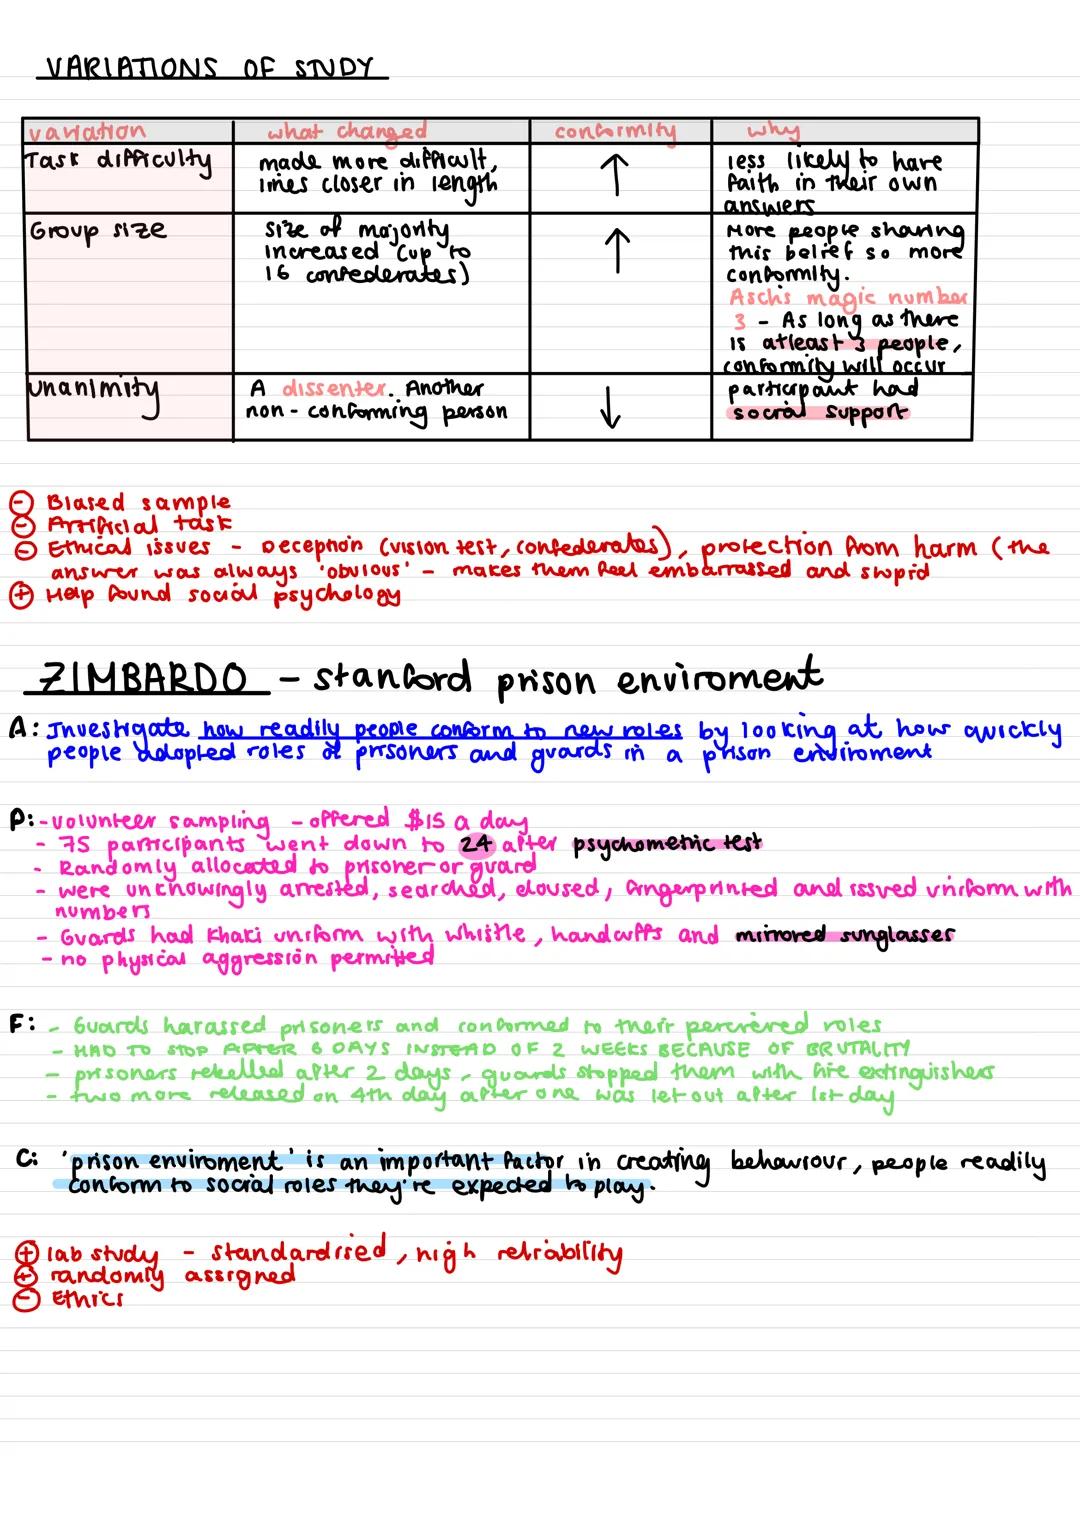 VARIATIONS OF STUDY
variation what changed conformity why
Task difficulty made more difficult, less likely to have
lines closer in length ↑ faith in their own
answers
Group size size of majority More people sharing
increased (up to ↑ this belief so more
16 confederates) conformity.
Aschs magic number
3 - As long as there
is atleast 3 people,
conformity will occur
unanimity A dissenter. Another participant had
non-conforming person ↓ social support
⊖ Biased sample
⊖ Artificial task
⊖ Ethical issues - Deception (vision test, confederates), protection from harm (the
answer was always 'obvious' - makes them feel embarrassed and stupid
⊕ Help found social psychology
ZIMBARDO - stanford prison enviroment
A: Investigate how readily people conform to new roles by looking at how quickly
people adopted roles of prisoners and guards in a prison enviroment
P: - volunteer sampling - offered $15 a day
- 75 participants went down to 24 after psychometric test
- Randomly allocated to prisoner or guard
- were unknowingly arrested, searched, doused, fingerprinted and issued uniform with
numbers
- Guards had khaki uniform with whistle, handcuffs and mirrored sunglasses
- no physical aggression permitted
F: - Guards harassed prisoners and conformed to their percieved roles
- HAD TO STOP AFTER 6 DAYS INSTEAD OF 2 WEEKS BECAUSE OF BRUTALITY
- prisoners rebelled after 2 days, guards stopped them with fire extinguishers
- two more released on 4th day after one was let out after 1st day
C: 'prison enviroment' is an important factor in creating behaviour, people readily
conform to social roles they're expected to play.
⊕ lab study - standardised, high reliability
⊕ randomly assigned
⊖ Ethics